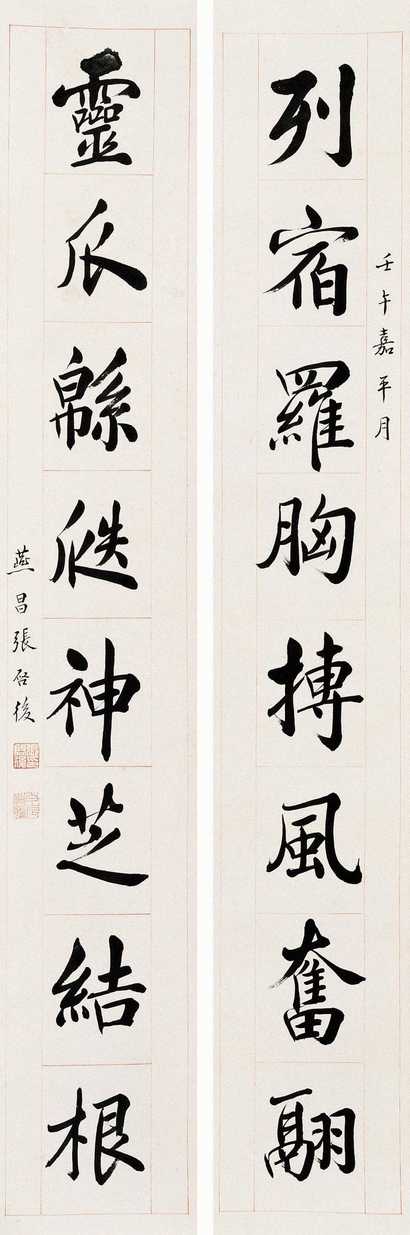 壬午嘉平月
列宿羅胸搏風奮翮
靈瓜緜瓞神芝結根
燕昌張启後